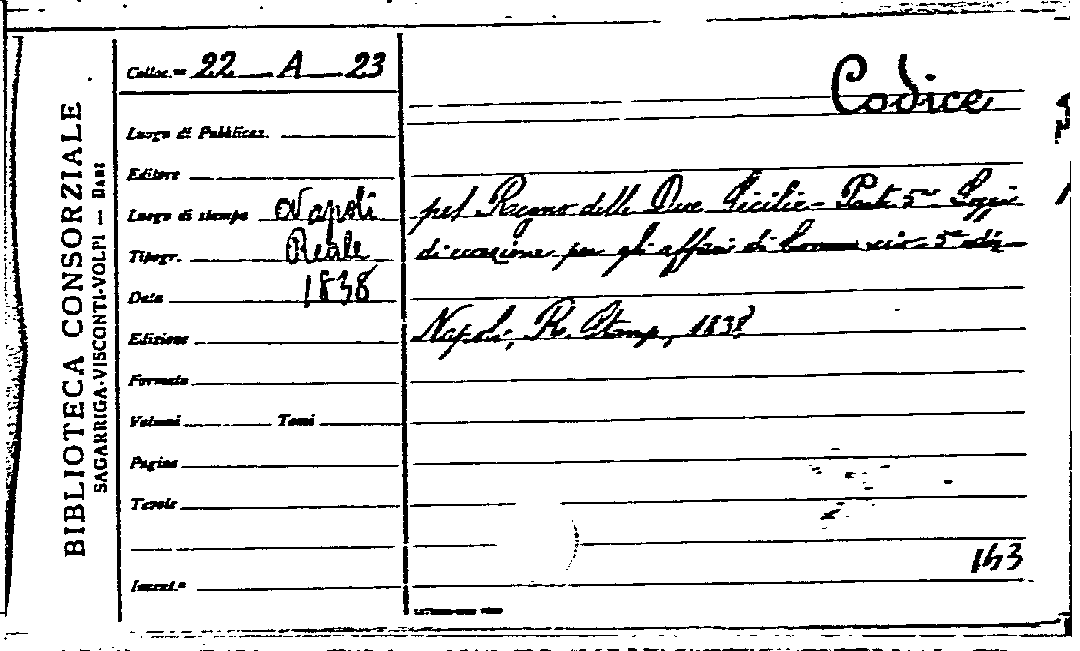 BIBLIOTECA CONSORZIALE
SAGARRIGA-VISCONTI-VOLPI — BARI
Colloc.ne 22 A 23
Luogo di Pubblicaz.
Editore
Luogo di stampa Napoli
Tipogr. Reale
Data 1838
Edizione
Formato
Volumi Tomi
Pagine
Tavole
Inv.
Codice
pel Regno delle Due Sicilie - Parte 5ª Leggi
di eccezione per gli affari di Comm. civ. 5ª ediz
Napoli, R. Stamp., 1838
163